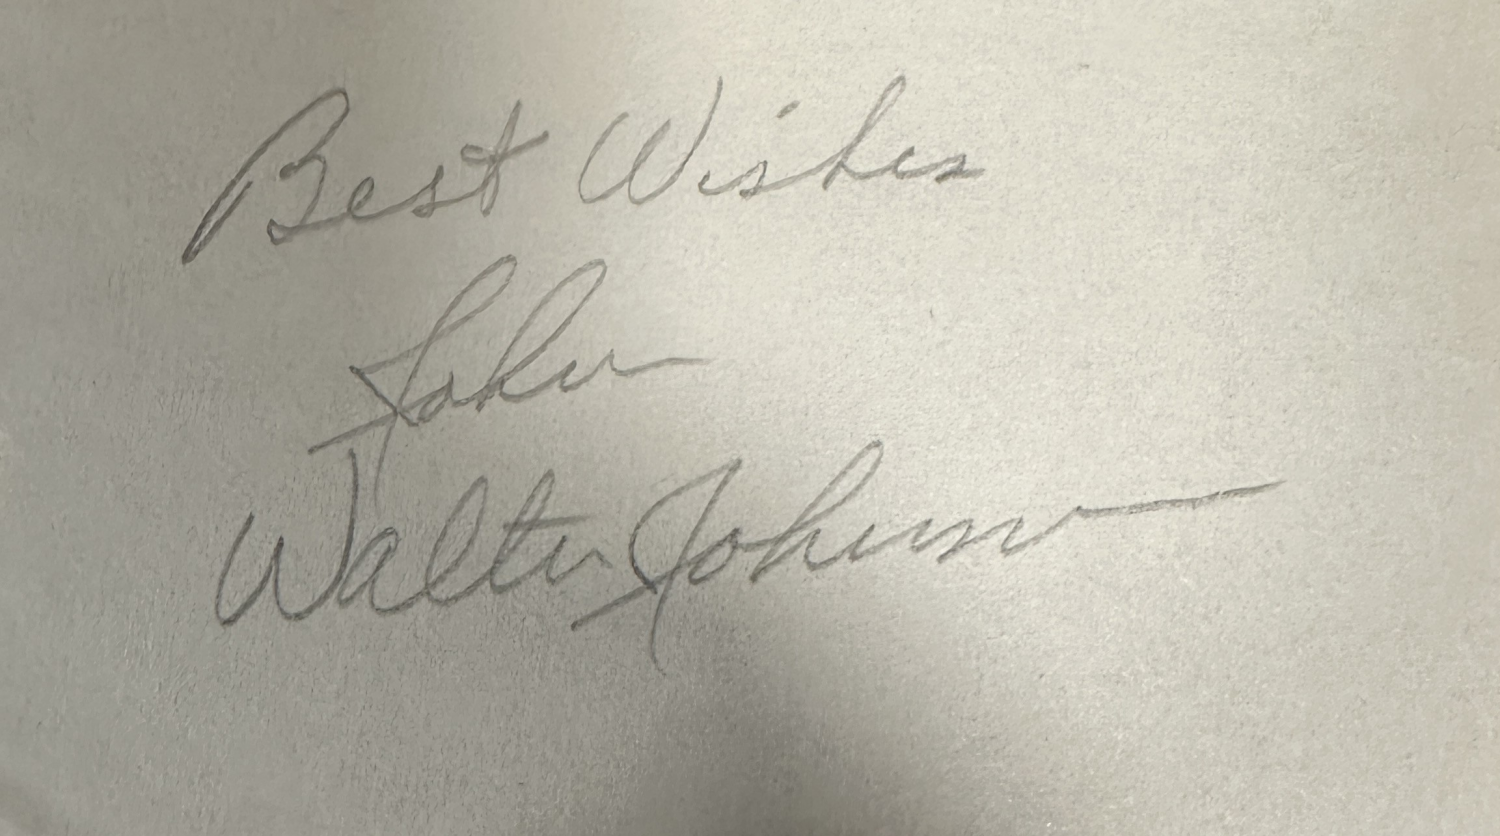 Best Wishes
John
Walter Johnson